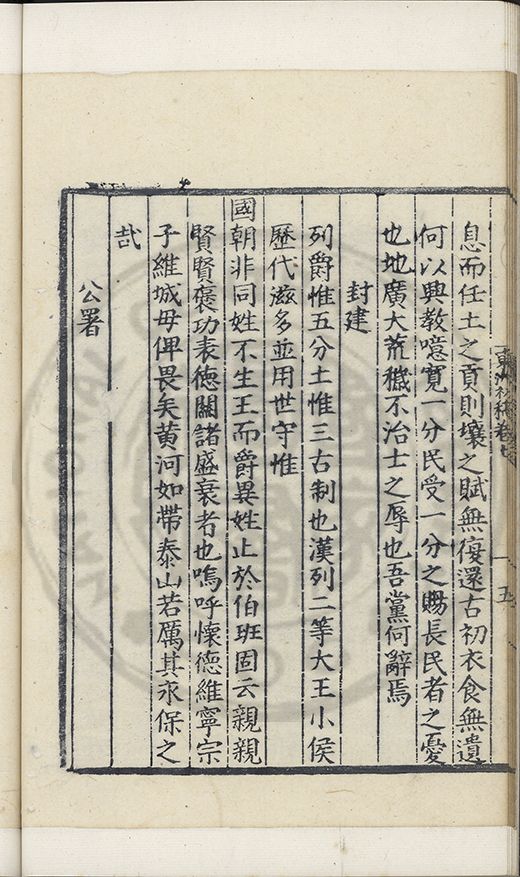 息而任土之貢則壤之賦無復還古初衣食無遺
何以興教噫寬一分民受一分之賜長民者之憂
也地廣大荒穢不治士之辱也吾黨何辭焉
封建
列爵惟五分土惟三古制也漢列二等大王小侯
歷代滋多並用世守惟
國朝非同姓不生王而爵異姓止於伯班固云親親
賢賢褒功表德關諸盛衰者也嗚呼懷德維寧宗
子維城毋俾畏矣黄河如帶泰山若厲其永保之
哉
公署
卷七
五